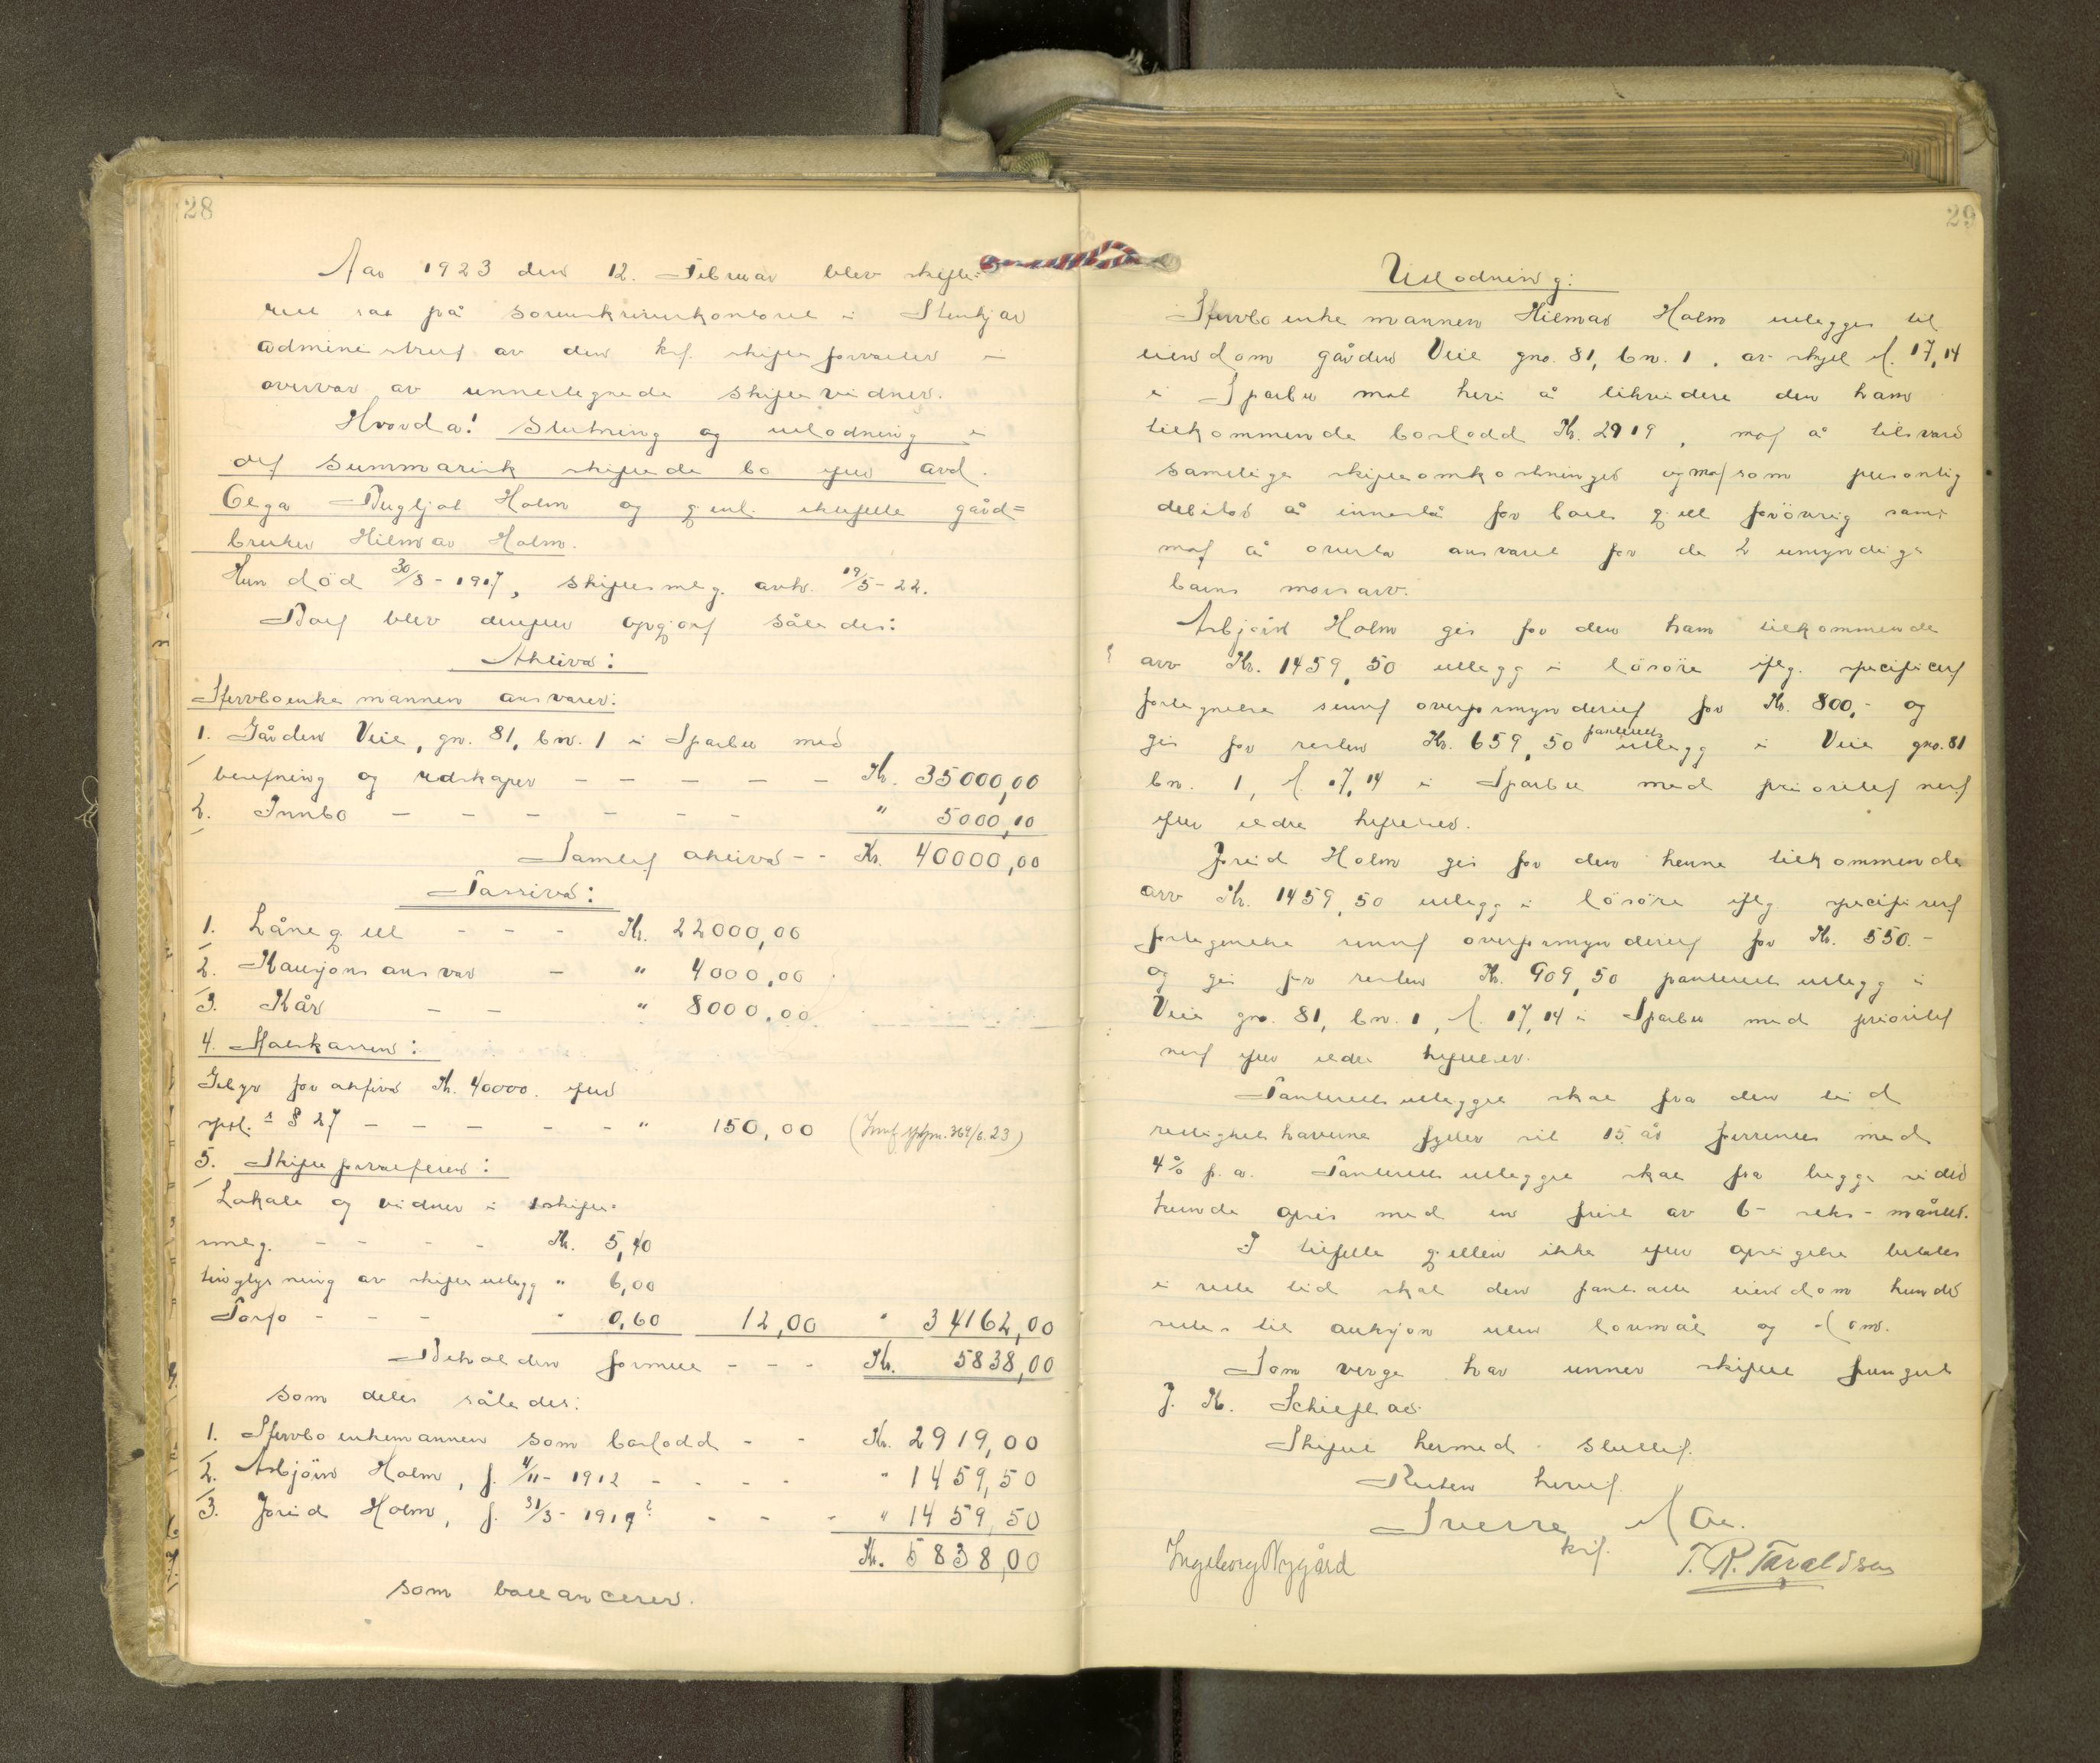 28
Aar 1923 den 12. Februar blev skifte=
rett sat på sorenskriverkontoret i Stenkjær
administrert av den kst. skifteforvalter i
overvær av unnertegnede skiftevidner.
Hvorda! Slutning og utlodning i
det summarisk skiftede bo efter avd.
Olga Bergljot Holm og gjenl. ektefelle gård=
bruker Hilmar Holm.
Hun död 30/8 - 1917, skiftesmlg. avh. 19/5 - 22.
Boet blev derefter opgjort således:
Aktiva:
Stervboenkemannen ansvarer:
1. Gården Veie, gn. 81, bn. 1 i Sparbu med
besetning og redskaper - - - - - Kr. 35000,00
2. Innbo - - - - - - " 5000,00
Samlet aktiva - - Kr. 40000,00
Passiva:
1. Lånegjell - - - Kr. 22000,00
2. Kausjonsansvar - " 4000,00
3. Kår - - " 8000,00
4. Statskassen:
Gebyr for aktiva Kr. 40000. efter
sptl.s § 27 - - - - - - " 150,00
5. Skifteforvalteren:
Lokale og vidner i 1 skifte=
smlg. - - - - Kr. 5,40
tinglysning av skifteutlegg " 6,00
Porto - - - " 0,60 12,00 " 34162,00
Beholden formue - - - Kr. 5838,00
som deles således:
1. Stervboenkemannen som boslodd - - Kr. 2919,00
2. Asbjörn Holm, f. 4/11 - 1912 - - - - " 1459,50
3. Jorid Holm, f. 31/3 - 1917? - - - " 1459,50
Kr. 5838,00
som ballancerer.
29
Utlodning:
Stervboenkemannen Hilmar Holm utlegges til
eiendom gården Veie gno. 81, bn. 1, av skyld M. 17,14
i Sparbu mot heri å likvidere den ham
tilkommende boslodd Kr. 2919, mot å tilsvare
samtlige skifteomkostninger og mot som personlig
debitor å innestå for boets gjell forövrig samt
mot å overta ansvaret for de 2 umyndige
barns morsarv.
Asbjörn Holm gis for den ham tilkommende
arv Kr. 1459,50 utlegg i lösöre iflg. specificert
fortegnelse sennt overformynderiet for Kr. 800,- og
gis for resten Kr. 659,50 panteretts utlegg i Veie gno. 81
bn. 1, M. 17,14 i Sparbu med prioritet nest
efter eldre heftelser.
Jorid Holm gis for den henne tilkommende
arv Kr. 1459,50 utlegg i lösöre iflg. specifisert
fortegnelse sennt overformynderiet for Kr. 550.-
og gis for resten Kr. 909,50 panteretts utlegg i
Veie gno. 81, bn. 1, M. 17,14 i Sparbu med prioritet
nest efter eldre heftelser.
Panteretts utlegget skal fra den tid
rettighetshaverne fyller sit 15. år forrentes med
4% p.a. Panteretts utlegget skal fra begge sider
kunde opsies med en frist av 6 - seks - måneder.
I tilfelle gjellen ikke efter opsigelse betales
i rette tid skal den pantsatte eiendom kunde
settes til auksjon uten lovmål og dom.
Som verge har unner skiftet fungert
J. K. Schieflo
Skiftet hermed sluttet.
Retten hevet.
Sverre Moe.
kst.
Ingeborg Nygård
T. R. Taraldsen